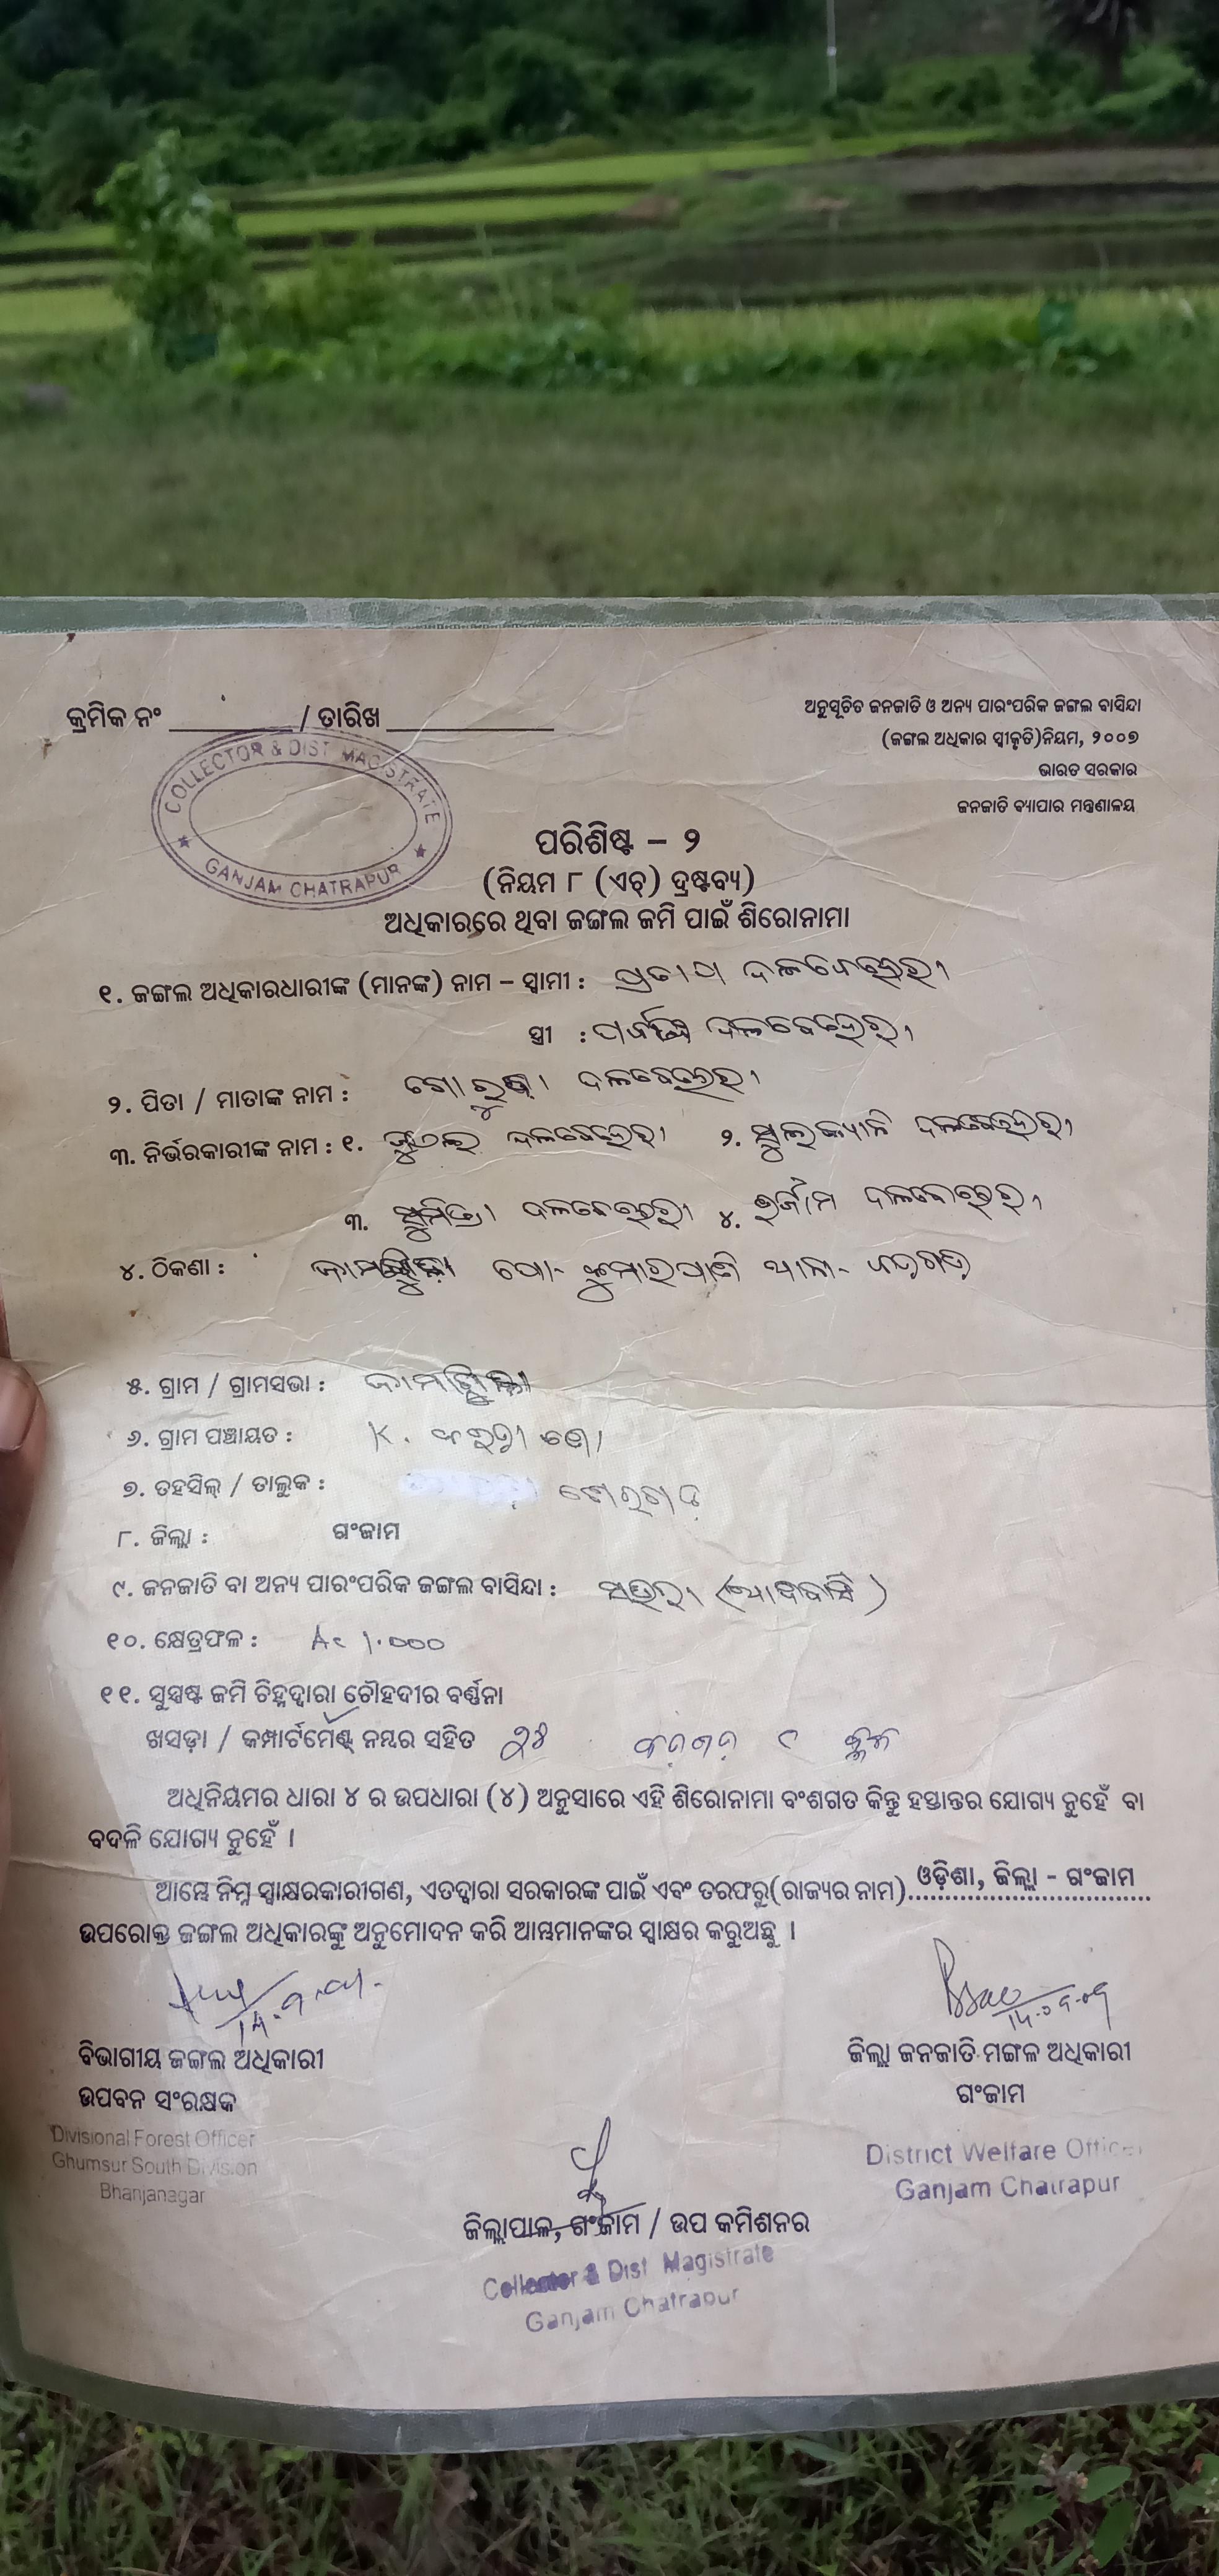 କ୍ରମିକ ନଂ / ତାରିଖ
ଅନୁସୂଚିତ ଜନଜାତି ଓ ଅନ୍ୟ ପାରଂପରିକ ଜଙ୍ଗଲ ବାସିନ୍ଦା
(ଜଙ୍ଗଲ ଅଧିକାର ସ୍ୱୀକୃତି)ନିୟମ, ୨୦୦୭
ଭାରତ ସରକାର
ଜନଜାତି ବ୍ୟାପାର ମନ୍ତ୍ରଣାଳୟ
COLLECTOR & DIST MAGISTRATE
★ GANJAM CHATRAPUR ★
ପରିଶିଷ୍ଟ – ୨
(ନିୟମ ୮ (ଏଚ୍) ଦ୍ରଷ୍ଟବ୍ୟ)
ଅଧିକାରରେ ଥିବା ଜଙ୍ଗଲ ଜମି ପାଇଁ ଶିରୋନାମା
୧. ଜଙ୍ଗଲ ଅଧିକାରଧାରୀଙ୍କ (ମାନଙ୍କ) ନାମ – ସ୍ୱାମୀ : ପ୍ରତାପ ଦଳବେହେରା
ସ୍ତ୍ରୀ : ଦଳବେହେରା
୨. ପିତା / ମାତାଙ୍କ ନାମ : ଦଳବେହେରା
୩. ନିର୍ଭରକାରୀଙ୍କ ନାମ : ୧. ଦଳବେହେରା ୨. ଦଳବେହେରା
୩. ସୁମିତ୍ରା ଦଳବେହେରା ୪. ଦଳବେହେରା
୪. ଠିକଣା : ପୋ- ଥାନା-
୫. ଗ୍ରାମ / ଗ୍ରାମସଭା :
୬. ଗ୍ରାମ ପଞ୍ଚାୟତ : K.
୭. ତହସିଲ୍ / ତାଲୁକ : ଶେରଗଡ଼
୮. ଜିଲ୍ଲା : ଗଂଜାମ
୯. ଜନଜାତି ବା ଅନ୍ୟ ପାରଂପରିକ ଜଙ୍ଗଲ ବାସିନ୍ଦା : ସଉରା (ଆଦିବାସି)
୧୦. କ୍ଷେତ୍ରଫଳ : Ac 1.000
୧୧. ସୁସ୍ପଷ୍ଟ ଜମି ଚିହ୍ନଦ୍ୱାରା ଚୌହଦୀର ବର୍ଣ୍ଣନା
ଖସଡ଼ା / କମ୍ପାର୍ଟମେଣ୍ଟ ନମ୍ବର ସହିତ
ଅଧିନିୟମର ଧାରା ୪ ର ଉପଧାରା (୪) ଅନୁସାରେ ଏହି ଶିରୋନାମା ବଂଶଗତ କିନ୍ତୁ ହସ୍ତାନ୍ତର ଯୋଗ୍ୟ ନୁହେଁ ବା
ବଦଳି ଯୋଗ୍ୟ ନୁହେଁ ।
ଆମ୍ଭେ ନିମ୍ନ ସ୍ୱାକ୍ଷରକାରୀଗଣ, ଏତଦ୍ୱାରା ସରକାରଙ୍କ ପାଇଁ ଏବଂ ତରଫରୁ(ରାଜ୍ୟର ନାମ) ଓଡ଼ିଶା, ଜିଲ୍ଲା - ଗଂଜାମ
ଉପରୋକ୍ତ ଜଙ୍ଗଲ ଅଧିକାରଙ୍କୁ ଅନୁମୋଦନ କରି ଆମ୍ଭମାନଙ୍କର ସ୍ୱାକ୍ଷର କରୁଅଛୁ ।
ବିଭାଗୀୟ ଜଙ୍ଗଲ ଅଧିକାରୀ
ଉପବନ ସଂରକ୍ଷକ
Divisional Forest Officer
Ghumsur South Division
Bhanjanagar
ଜିଲ୍ଲା ଜନଜାତି ମଙ୍ଗଳ ଅଧିକାରୀ
ଗଂଜାମ
District Welfare Officer
Ganjam Chatrapur
ଜିଲ୍ଲାପାଳ, ଗଂଜାମ / ଉପ କମିଶନର
Collector & Dist Magistrate
Ganjam Chatrapur